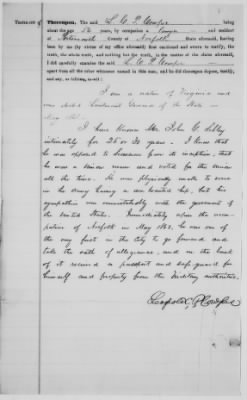 Testimony of Thereupon, The said L. C. P. Cowper being
by the age 52 years, by occupation a
at Portsmouth County of Norfolk State aforesaid, having
been by me (by virtue of my office aforesaid) first cautioned and sworn to testify,
the truth, the whole truth, and nothing but the truth, in the matter of the claim aforesaid,
I did carefully examine the said L. C. P. Cowper
apart from all the other witnesses named in this case, and he did thereupon depose, testify,
and say, as follows, to wit:
I am a native of Virginia and
was elected Lieutenant Governor of the State
in
I have known Mr. John C.
intimately for 25 or 30 years. I know that
he was opposed to Secession from its inception, that
he was a Union man and voted for the union
all the time. He was physically unable to serve
in the army having a dislocated hip, but his
sympathies was unmistakably with the government of
the United States. Immediately upon the occu-
pation of Norfolk in May 1862, he was one of
the very first in the City to go forward and
take the oath of allegiance, and on the back
of it received a passport and safe guard for
himself and property from the Military authorities.
Leopold C. P. Cowper